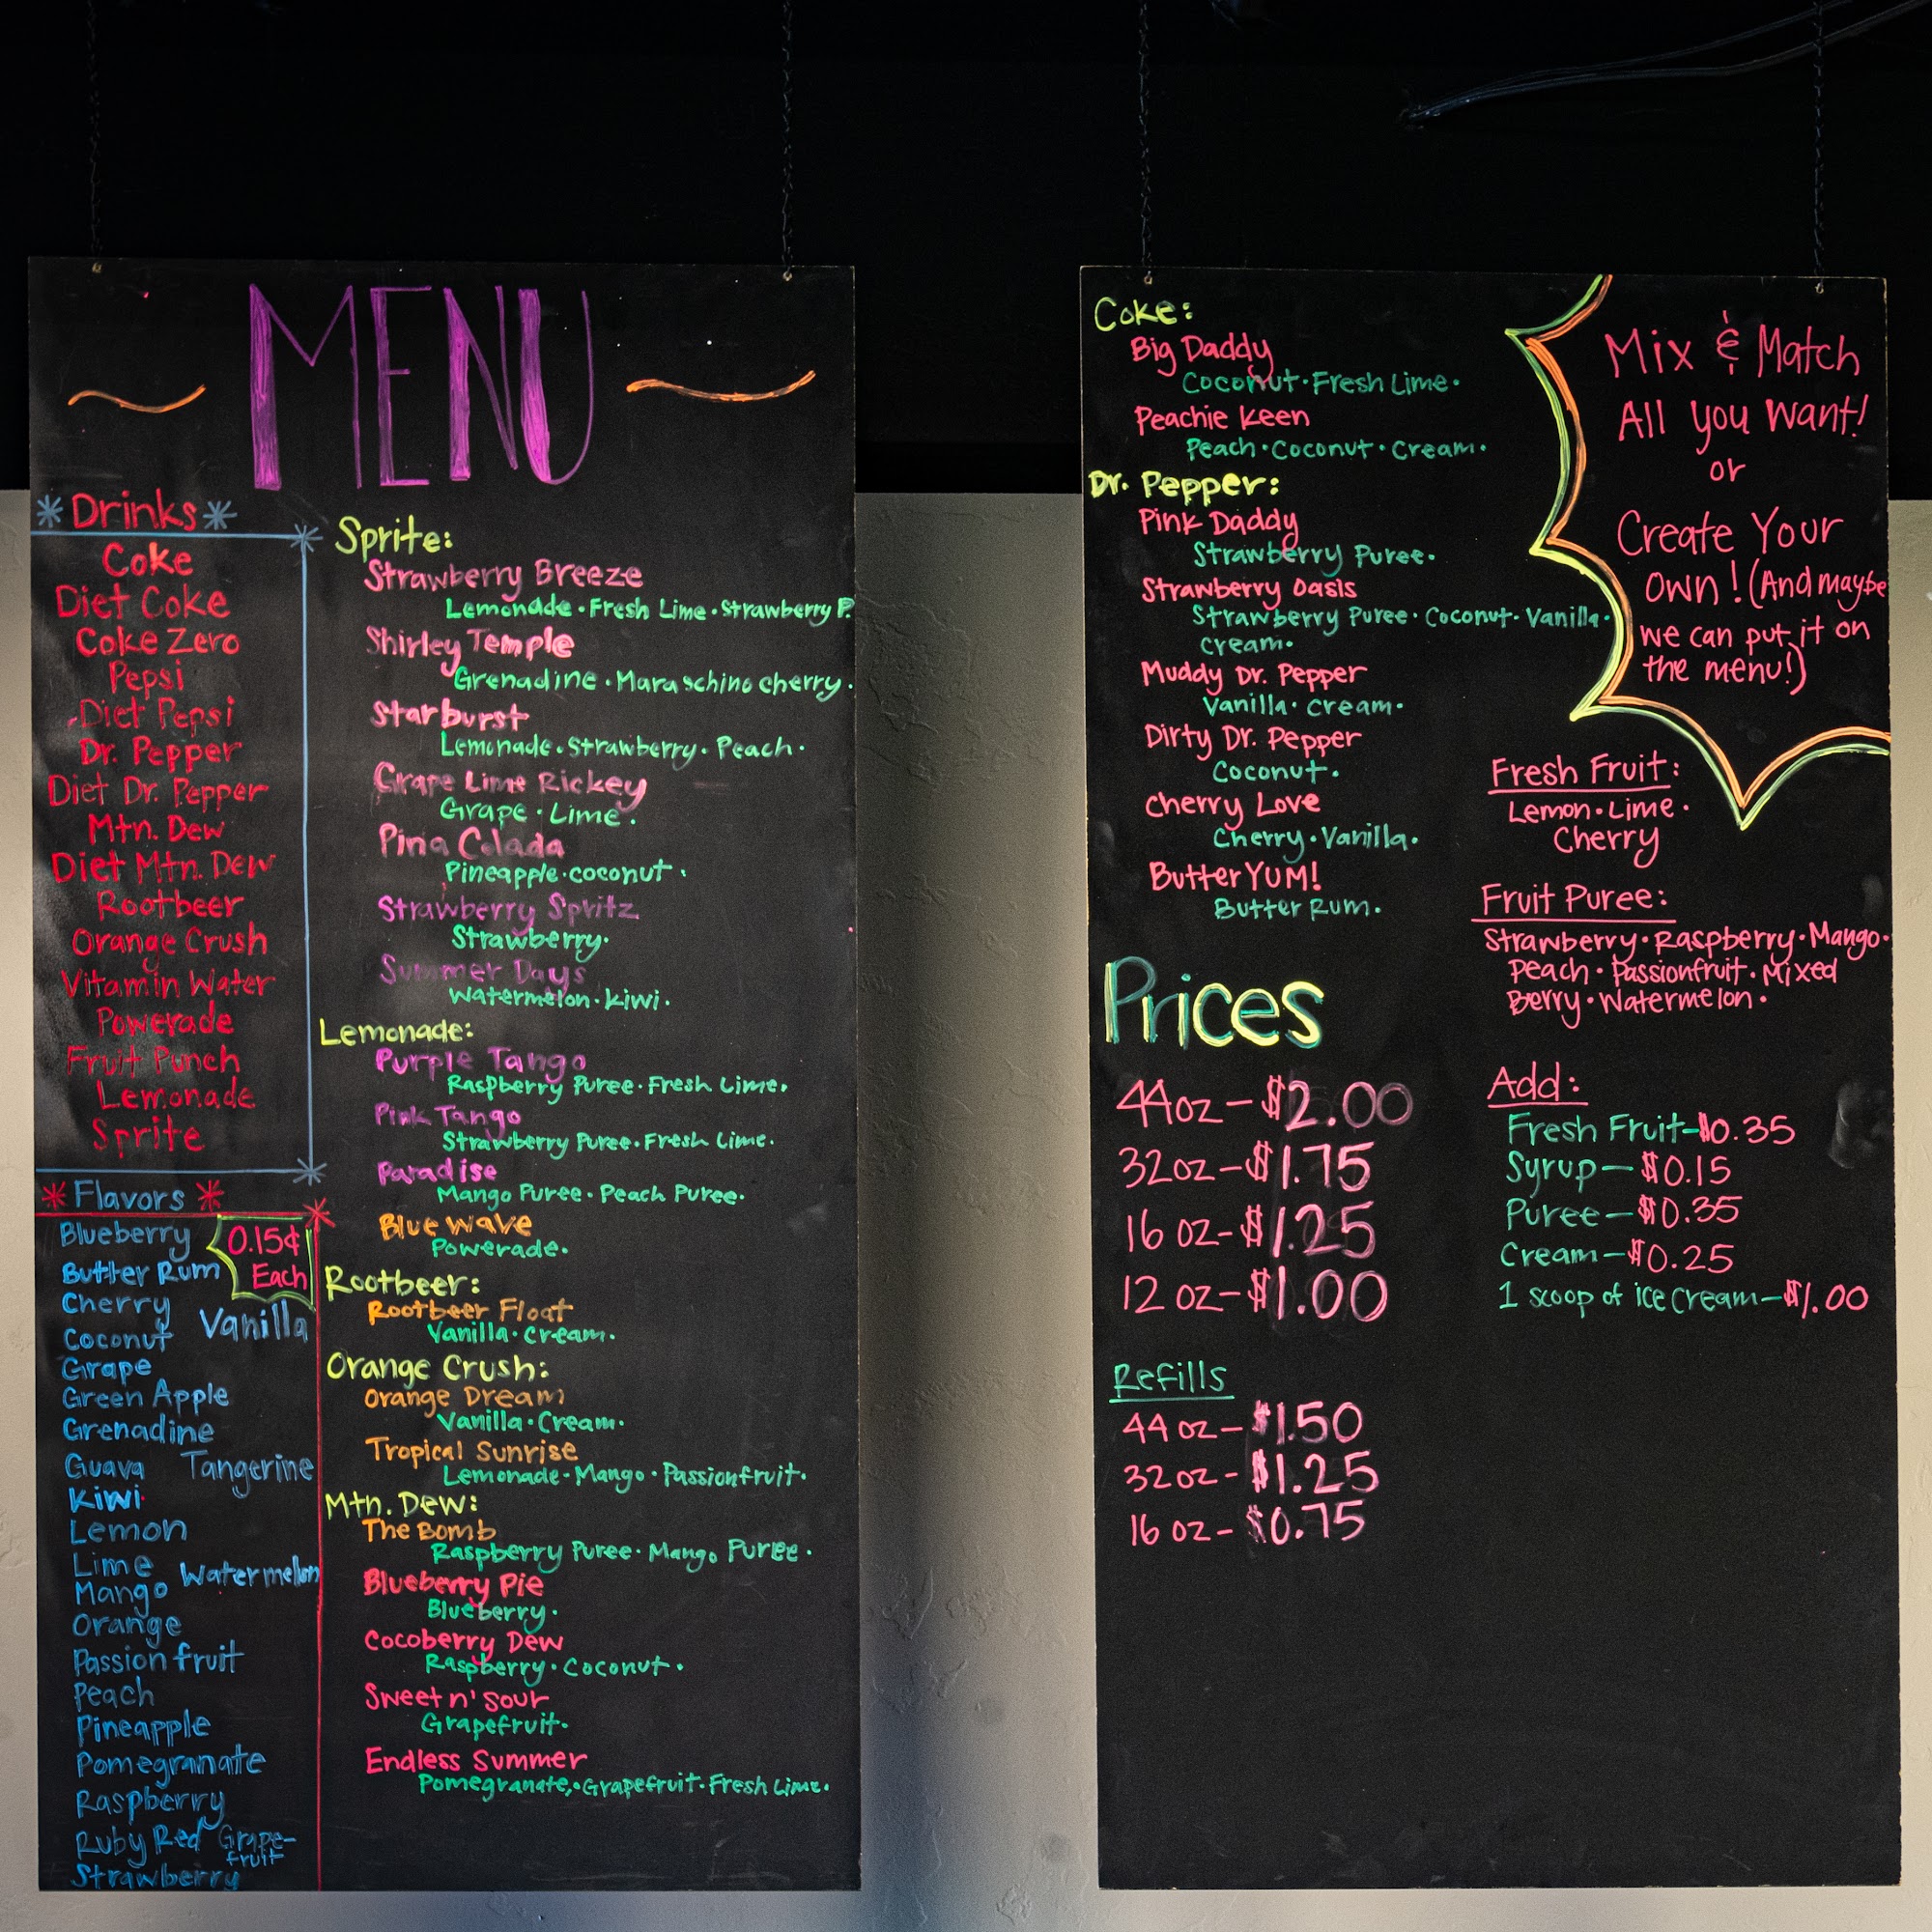 MENU
* Drinks *
Coke
Diet Coke
Coke Zero
Pepsi
Diet Pepsi
Dr. Pepper
Diet Dr. Pepper
Mtn. Dew
Diet Mtn. Dew
Rootbeer
Orange Crush
Vitamin Water
Powerade
Fruit Punch
Lemonade
Sprite
* Flavors *
0.15¢
Each
Blueberry
Butter Rum
Cherry
Vanilla
Coconut
Grape
Green Apple
Grenadine
Guava Tangerine
Kiwi
Lemon
Lime Watermelon
Mango
Orange
Passion fruit
Peach
Pineapple
Pomegranate
Raspberry
Ruby Red Grape-
fruit
Strawberry
Sprite:
Strawberry Breeze
Lemonade · Fresh Lime · Strawberry P.
Shirley Temple
Grenadine · Maraschino cherry.
Starburst
Lemonade · Strawberry · Peach ·
Grape Lime Rickey
Grape · Lime.
Pina Colada
Pineapple · coconut.
Strawberry Spritz
Strawberry.
Summer Days
Watermelon · Kiwi.
Lemonade:
Purple Tango
Raspberry Puree · Fresh Lime.
Pink Tango
Strawberry Puree · Fresh Lime.
Paradise
Mango Puree · Peach Puree.
Blue Wave
Powerade.
Rootbeer:
Rootbeer Float
Vanilla · Cream.
Orange Crush:
Orange Dream
Vanilla · Cream.
Tropical Sunrise
Lemonade · Mango · Passionfruit.
Mtn. Dew:
The Bomb
Raspberry Puree · Mango Puree.
Blueberry Pie
Blueberry.
Cocoberry Dew
Raspberry · Coconut.
Sweet n' Sour
Grapefruit.
Endless Summer
Pomegranate, · Grapefruit · Fresh Lime.
Coke:
Big Daddy
Coconut · Fresh Lime.
Peachie Keen
Peach · Coconut · Cream.
Dr. Pepper:
Pink Daddy
Strawberry Puree.
Strawberry Oasis
Strawberry Puree · Coconut · Vanilla ·
cream.
Muddy Dr. Pepper
Vanilla · Cream.
Dirty Dr. Pepper
Coconut.
Cherry Love
Cherry · Vanilla.
Butter YUM!
Butter Rum.
Mix & Match
All you want!
or
Create Your
own! (And maybe
we can put it on
the menu!)
Fresh Fruit:
Lemon · Lime ·
Cherry
Fruit Puree:
Strawberry · Raspberry · Mango ·
Peach · Passionfruit · Mixed
Berry · Watermelon.
Prices
44oz – $2.00
32oz – $1.75
16 oz – $1.25
12 oz – $1.00
Refills
44 oz – $1.50
32oz – $1.25
16 oz – $0.75
Add:
Fresh Fruit – $0.35
Syrup – $0.15
Puree – $0.35
Cream – $0.25
1 scoop of ice cream – $1.00